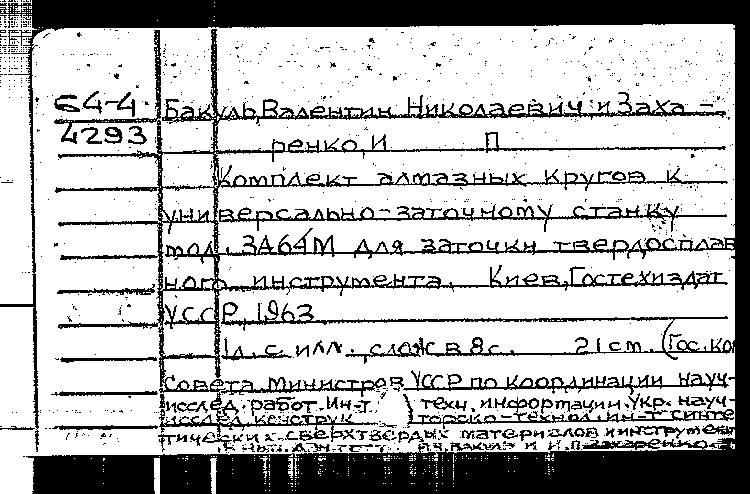 64-4 Бакуль, Валентин Николаевич и Заха-
4293
ренко, И П
Комплект алмазных кругов к
универсально-заточному станку
мод. 3А64М для заточки твердосплав
ного инструмента. Киев, Гостехиздат
УССР, 1963
1л. с илл., слож в 8с. 21 см. (Гос. ком
Совета Министров УССР по координации науч-
исслед. работ. Ин-т техн. информации. Укр. науч-
исслед. конструк торско-технол. ин-т синте
тических сверхтвердых материалов и инструмен